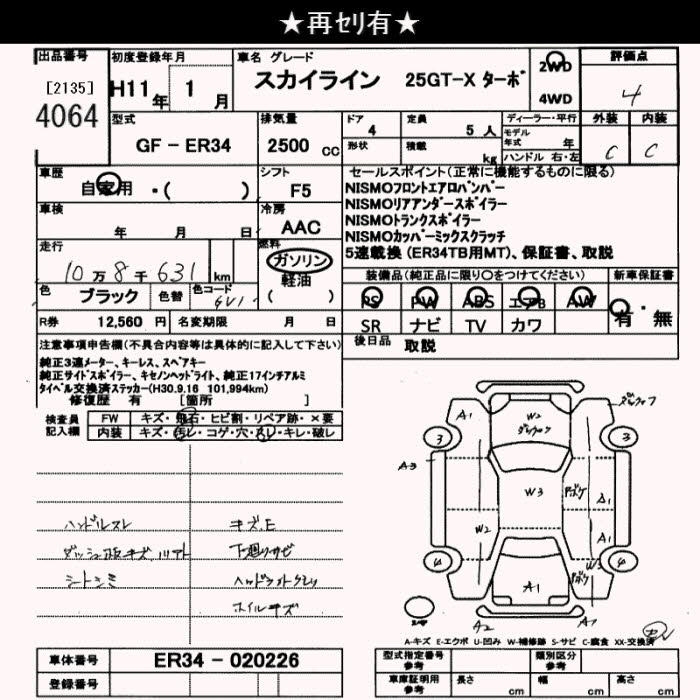 ★再セリ有★
出品番号 初度登録年月 車名 グレード 評価点
[2135] 4064 H11年 1月 スカイライン 25GT-X ターボ 2WD 4WD 4
型式 排気量 ドア 定員 ディーラー・平行 外装 内装
GF - ER34 2500 cc 4 5 人 モデル年式 年 C C
形状 積載 kg ハンドル 右・左
車歴 シフト セールスポイント(正常に機能するものに限る)
自家用 ・( ) F5 NISMOフロントエアロバンパー
NISMOリアアンダースポイラー
車検 冷房 NISMOトランクスポイラー
年 月 日 AAC NISMOカッパーミックスクラッチ
走行 燃料 5連載換 (ER34TB用MT)、保証書、取説
10万8千631 km ガソリン 軽油 ( )
装備品(純正品に限り○をつけてください) 新車保証書
色 ブラック 色替 色コード 6V1 PS PW ABS エアB AW 有・無
R券 12,560 円 名変期限 月 日 SR ナビ TV カワ
注意事項申告欄(不具合内容等は具体的に記入して下さい) 後日品 取説
純正3連メーター、キーレス、スペアキー
純正サイドスポイラー、キセノンヘッドライト、純正17インチアルミ
タイベル交換済ステッカー(H30.9.16 101,994km)
修復歴 有 [箇所 ]
検査員記入欄 FW キズ・飛石・ヒビ割・リペア跡・×要
内装 キズ・汚レ・コゲ・穴・スレ・キレ・破レ
A1 W2
3 3
A3 W3 A1
W2 A1
W3
4 4
A1
A2 A1
ハンドルスレ キズE
ダッシュ板キズ 下廻りサビ
シートシミ
ホイルキズ
A-キズ E-エクボ U-凹み W-補修跡 S-サビ C-腐食 XX-交換済
車体番号 ER34 - 020226 型式指定番号 参考 類別区分 参考
登録番号 車庫証明用 参考 長さ cm 幅 cm 高さ cm